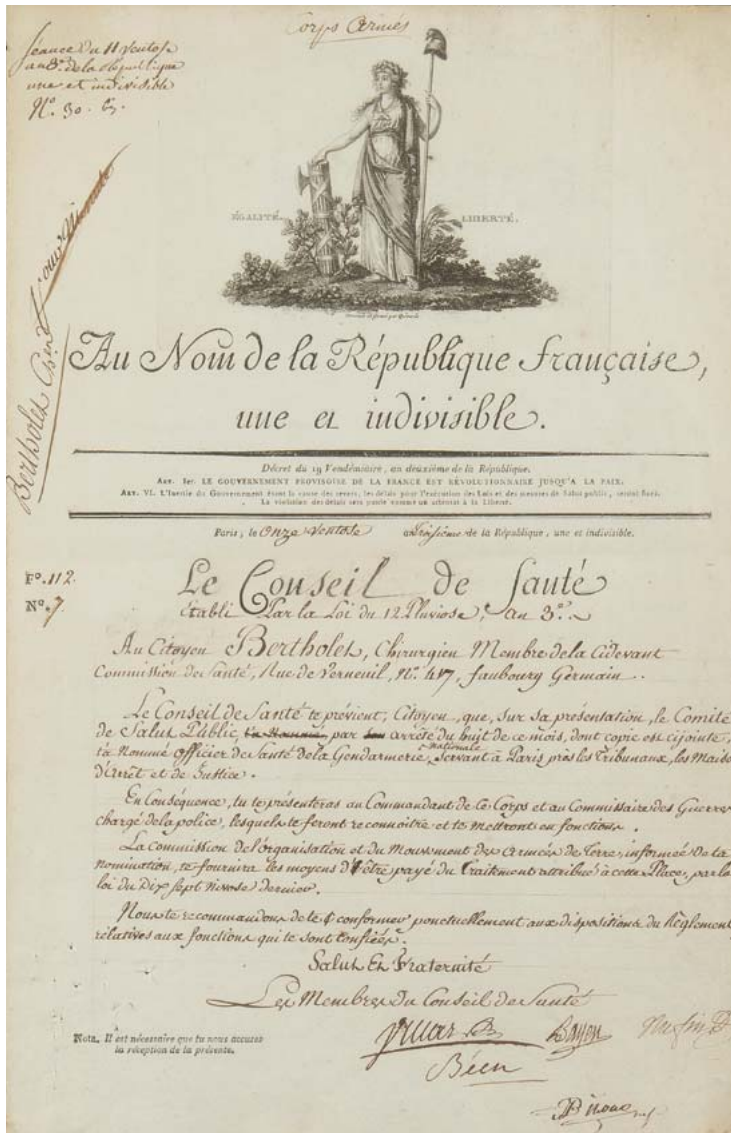 Corps Armés
Séance du 11 Ventose
an 3e. de la République
une et indivisible
N°. 30.
Bertholet Chirn.
ÉGALITÉ. LIBERTÉ.
Au Nom de la République française,
une et indivisible.
Décret du 19 Vendémiaire, an deuxième de la République.
Art. Ier. LE GOUVERNEMENT PROVISOIRE DE LA FRANCE EST RÉVOLUTIONNAIRE JUSQU'A LA PAIX.
Art. VI. L'Inertie du Gouvernement étant la cause des revers, les délais pour l'exécution des Lois et des mesures de Salut public, seront fixés.
La violation des délais sera punie comme un attentat à la Liberté.
Paris, le Onze Ventose an troisième de la République, une et indivisible.
F°. 112.
N°. 7
Le Conseil de Santé
établi Par la Loi du 12 Pluviose, an 3e.
Au Citoyen Bertholet, Chirurgien Membre de la Cidevant
Commission de Santé, Rue de Verneuil, N°. 417, faubourg Germain.
Le Conseil de Santé te prévient, Citoyen, que, sur sa présentation, le Comité
de Salut Public, par arrêté du huit de ce mois, dont copie est cijointe,
t'a Nommé officier de Santé de la Gendarmerie nationale Servant à Paris près les Tribunaux, les Maisons
d'Arrêt et de Justice.
En Conséquence, tu te présenteras au Commandant de ce Corps et au Commissaire des Guerres
chargé de la police, lesquels te feront reconnoitre et te mettront en fonctions.
La Commission de l'organisation et du Mouvement des Armées de Terre, informée de ta
nomination, te fournira les moyens d'être payé du Traitement attribué à cette Place, par la
loi du Dix sept Nivose dernier.
Nous te recommandons de te conformer ponctuellement aux dispositions du Règlement
relatives aux fonctions qui te sont confiées.
Salut Et Fraternité
Les Membres du Conseil de Santé
Nota. Il est nécessaire que tu nous accuses
la réception de la présente.
Bayen
Bécu